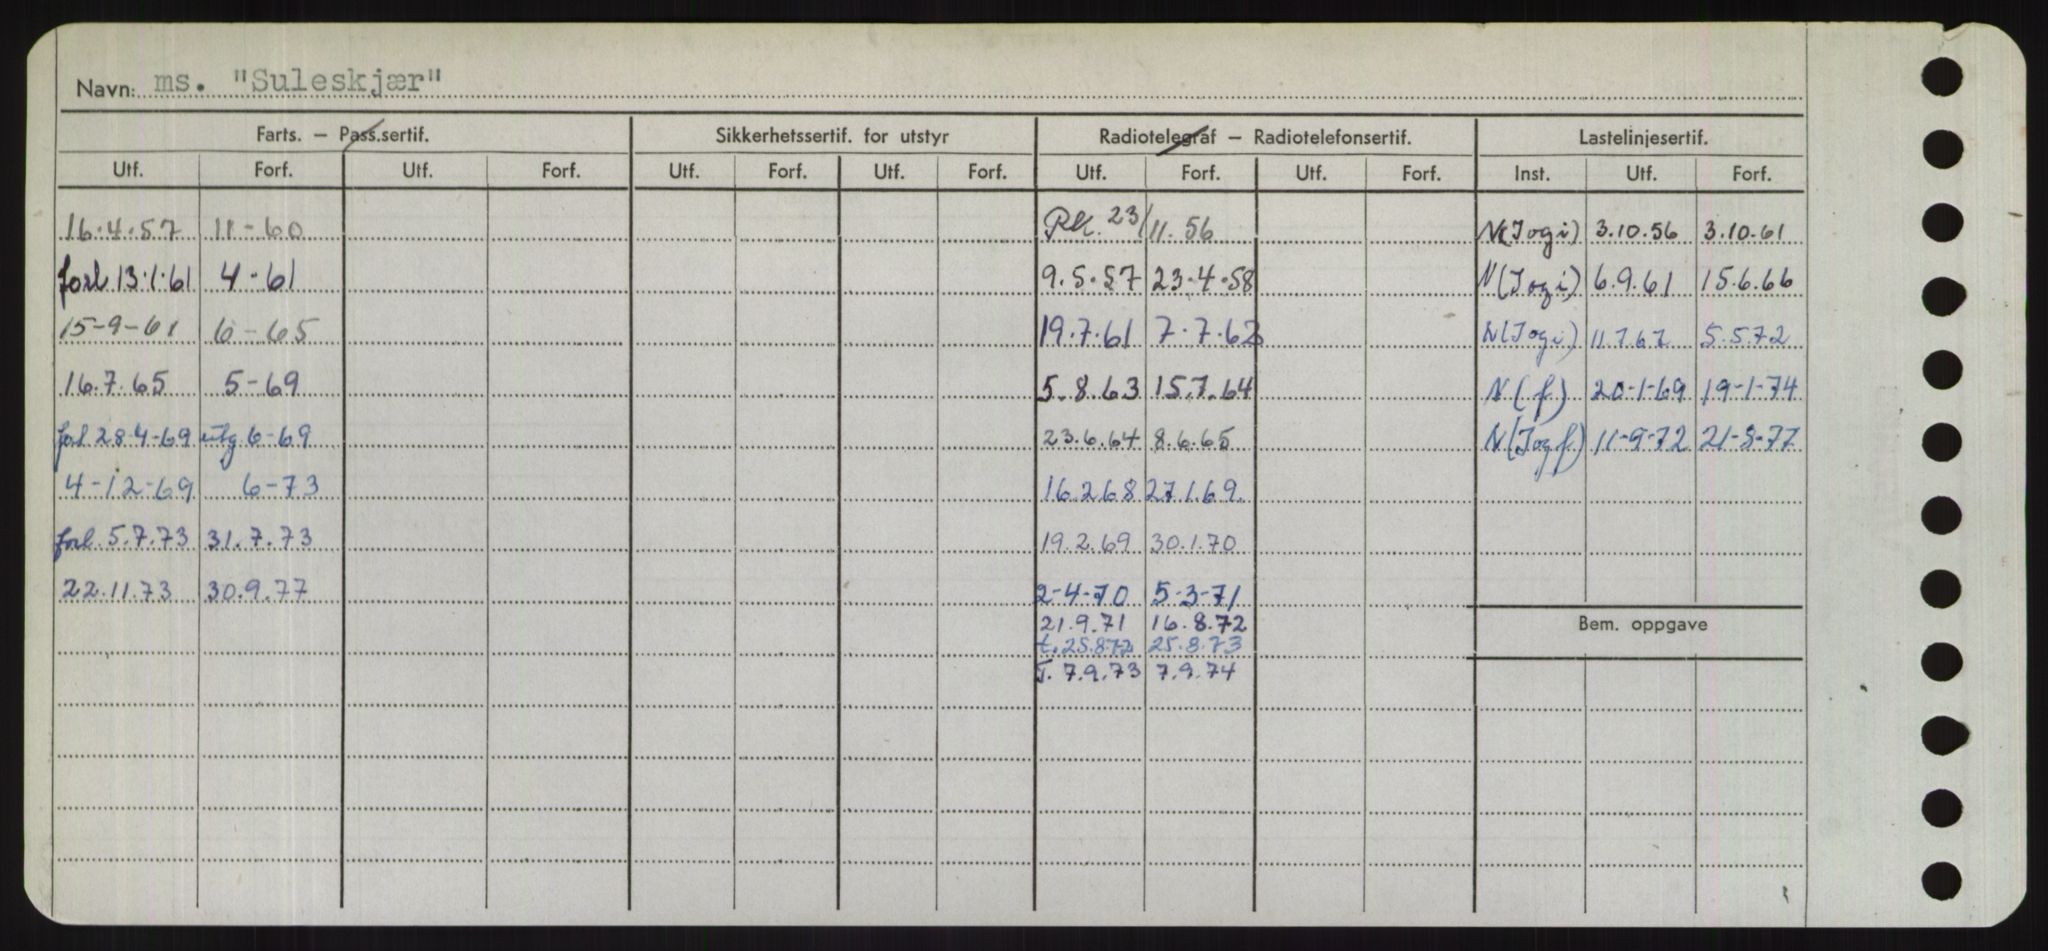 Navn: ms. "Suleskjær"
Farts. – Pass.sertif. Sikkerhetssertif. for utstyr Radiotelegraf – Radiotelefonsertif. Lastelinjesertif.
Utf. Forf. Utf. Forf. Utf. Forf. Utf. Forf. Utf. Forf. Utf. Forf. Inst. Utf. Forf.
16.4.57 11-60 23/11.56 N(I og i) 3.10.56 3.10.61
forl 13.1.61 4-61 9.5.57 23.4.58 N(I og i) 6.9.61 15.6.66
15-9-61 6-65 19.7.61 7.7.62 N(I og i) 11.7.67 5.5.72
16.7.65 5-69 5.8.63 15.7.64 N(f) 20-1-69 19-1-74
forl 28-4-69 utg 6-69 23.6.64 8.6.65 N(I og f) 11-9-72 21-5-77
4-12-69 6-73 16.2.68 27.1.69.
forl. 5.7.73 31.7.73 19.2.69 30.1.70
22.11.73 30.9.77 2-4-70 5-3-71
21.9.71 16.8.72 Bem. oppgave
t. 25.8.72 25.8.73
T. 7.9.73 7.9.74